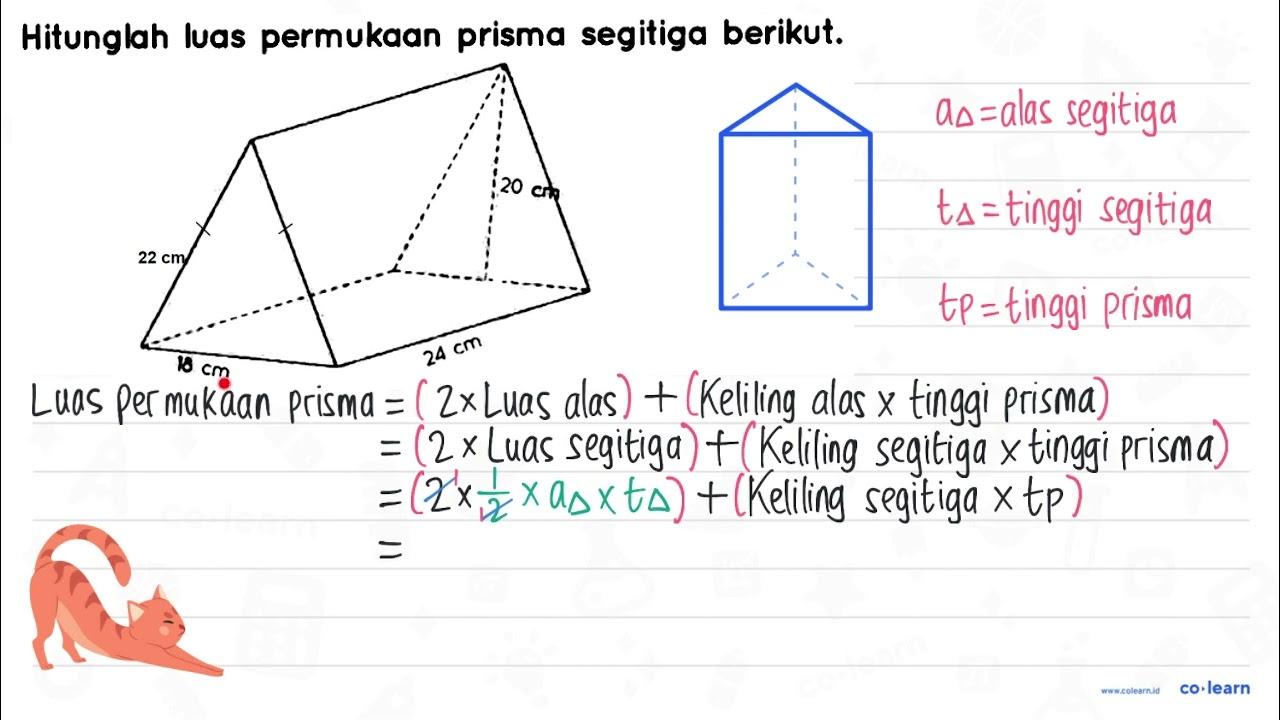 Hitunglah luas permukaan prisma segitiga berikut.
20 cm
22 cm
18 cm
24 cm
a△ = alas segitiga
t△ = tinggi segitiga
tp = tinggi prisma
Luas permukaan prisma = (2 × Luas alas) + (Keliling alas × tinggi prisma)
= (2 × Luas segitiga) + (Keliling segitiga × tinggi prisma)
= (2 1 × 1/2 1 × a△ × t△) + (Keliling segitiga × tp)
=
www.colearn.id co·learn